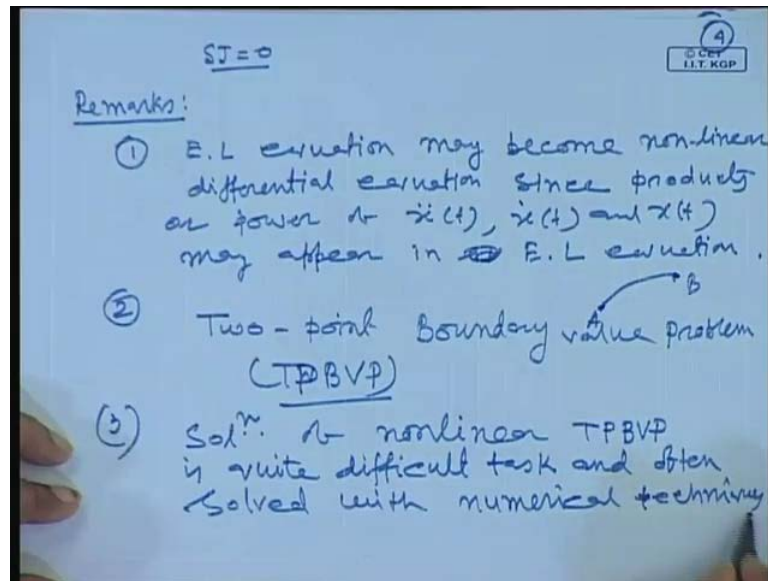 4
© CET
I.I.T. KGP
SJ = 0
Remarks:
① E.L equation may become non-linear
differential equation since products
or power of ẍ(t), ẋ(t) and x(t)
may appear in E.L equation.
A B
② Two-point Boundary value problem
(TPBVP)
③ Solⁿ. of nonlinear TPBVP
is quite difficult task and often
solved with numerical techniques